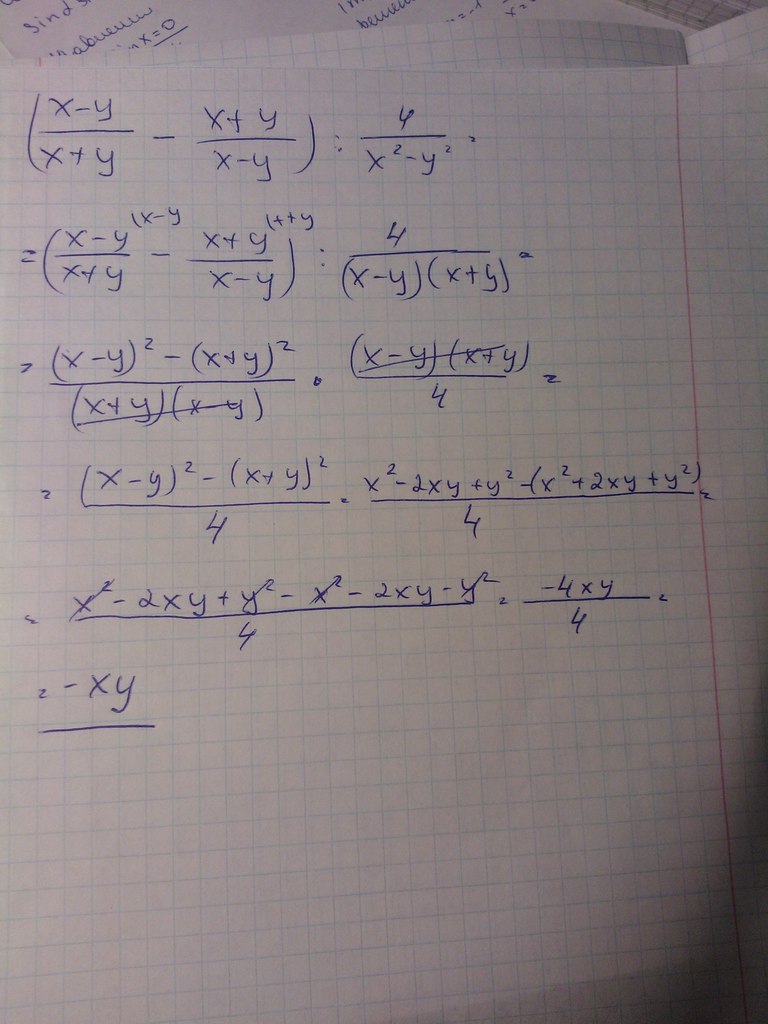 sind s
x=0
(x-y/x+y - x+y/x-y) : 4/x²-y² =
= (x-y/x+y (x-y - x+y/x-y (x+y) : 4/(x-y)(x+y) =
= (x-y)² - (x+y)²/(x+y)(x-y) · (x-y)(x+y)/4 =
= (x-y)² - (x+y)²/4 = x²-2xy+y²-(x²+2xy+y²)/4 =
= x²-2xy+y²-x²-2xy-y²/4 = -4xy/4 =
= -xy